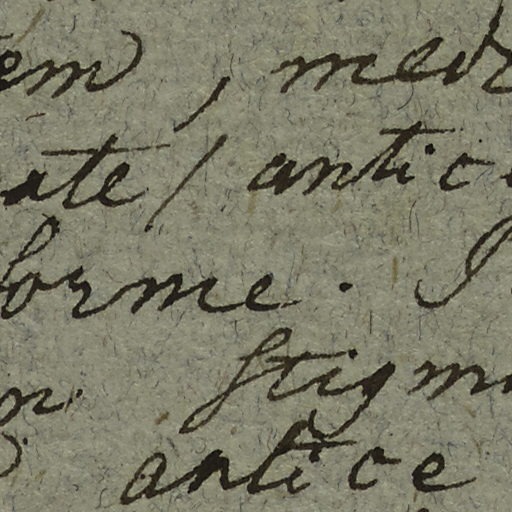 em, med
ate / antic
forme. P
n. Stigm
antice